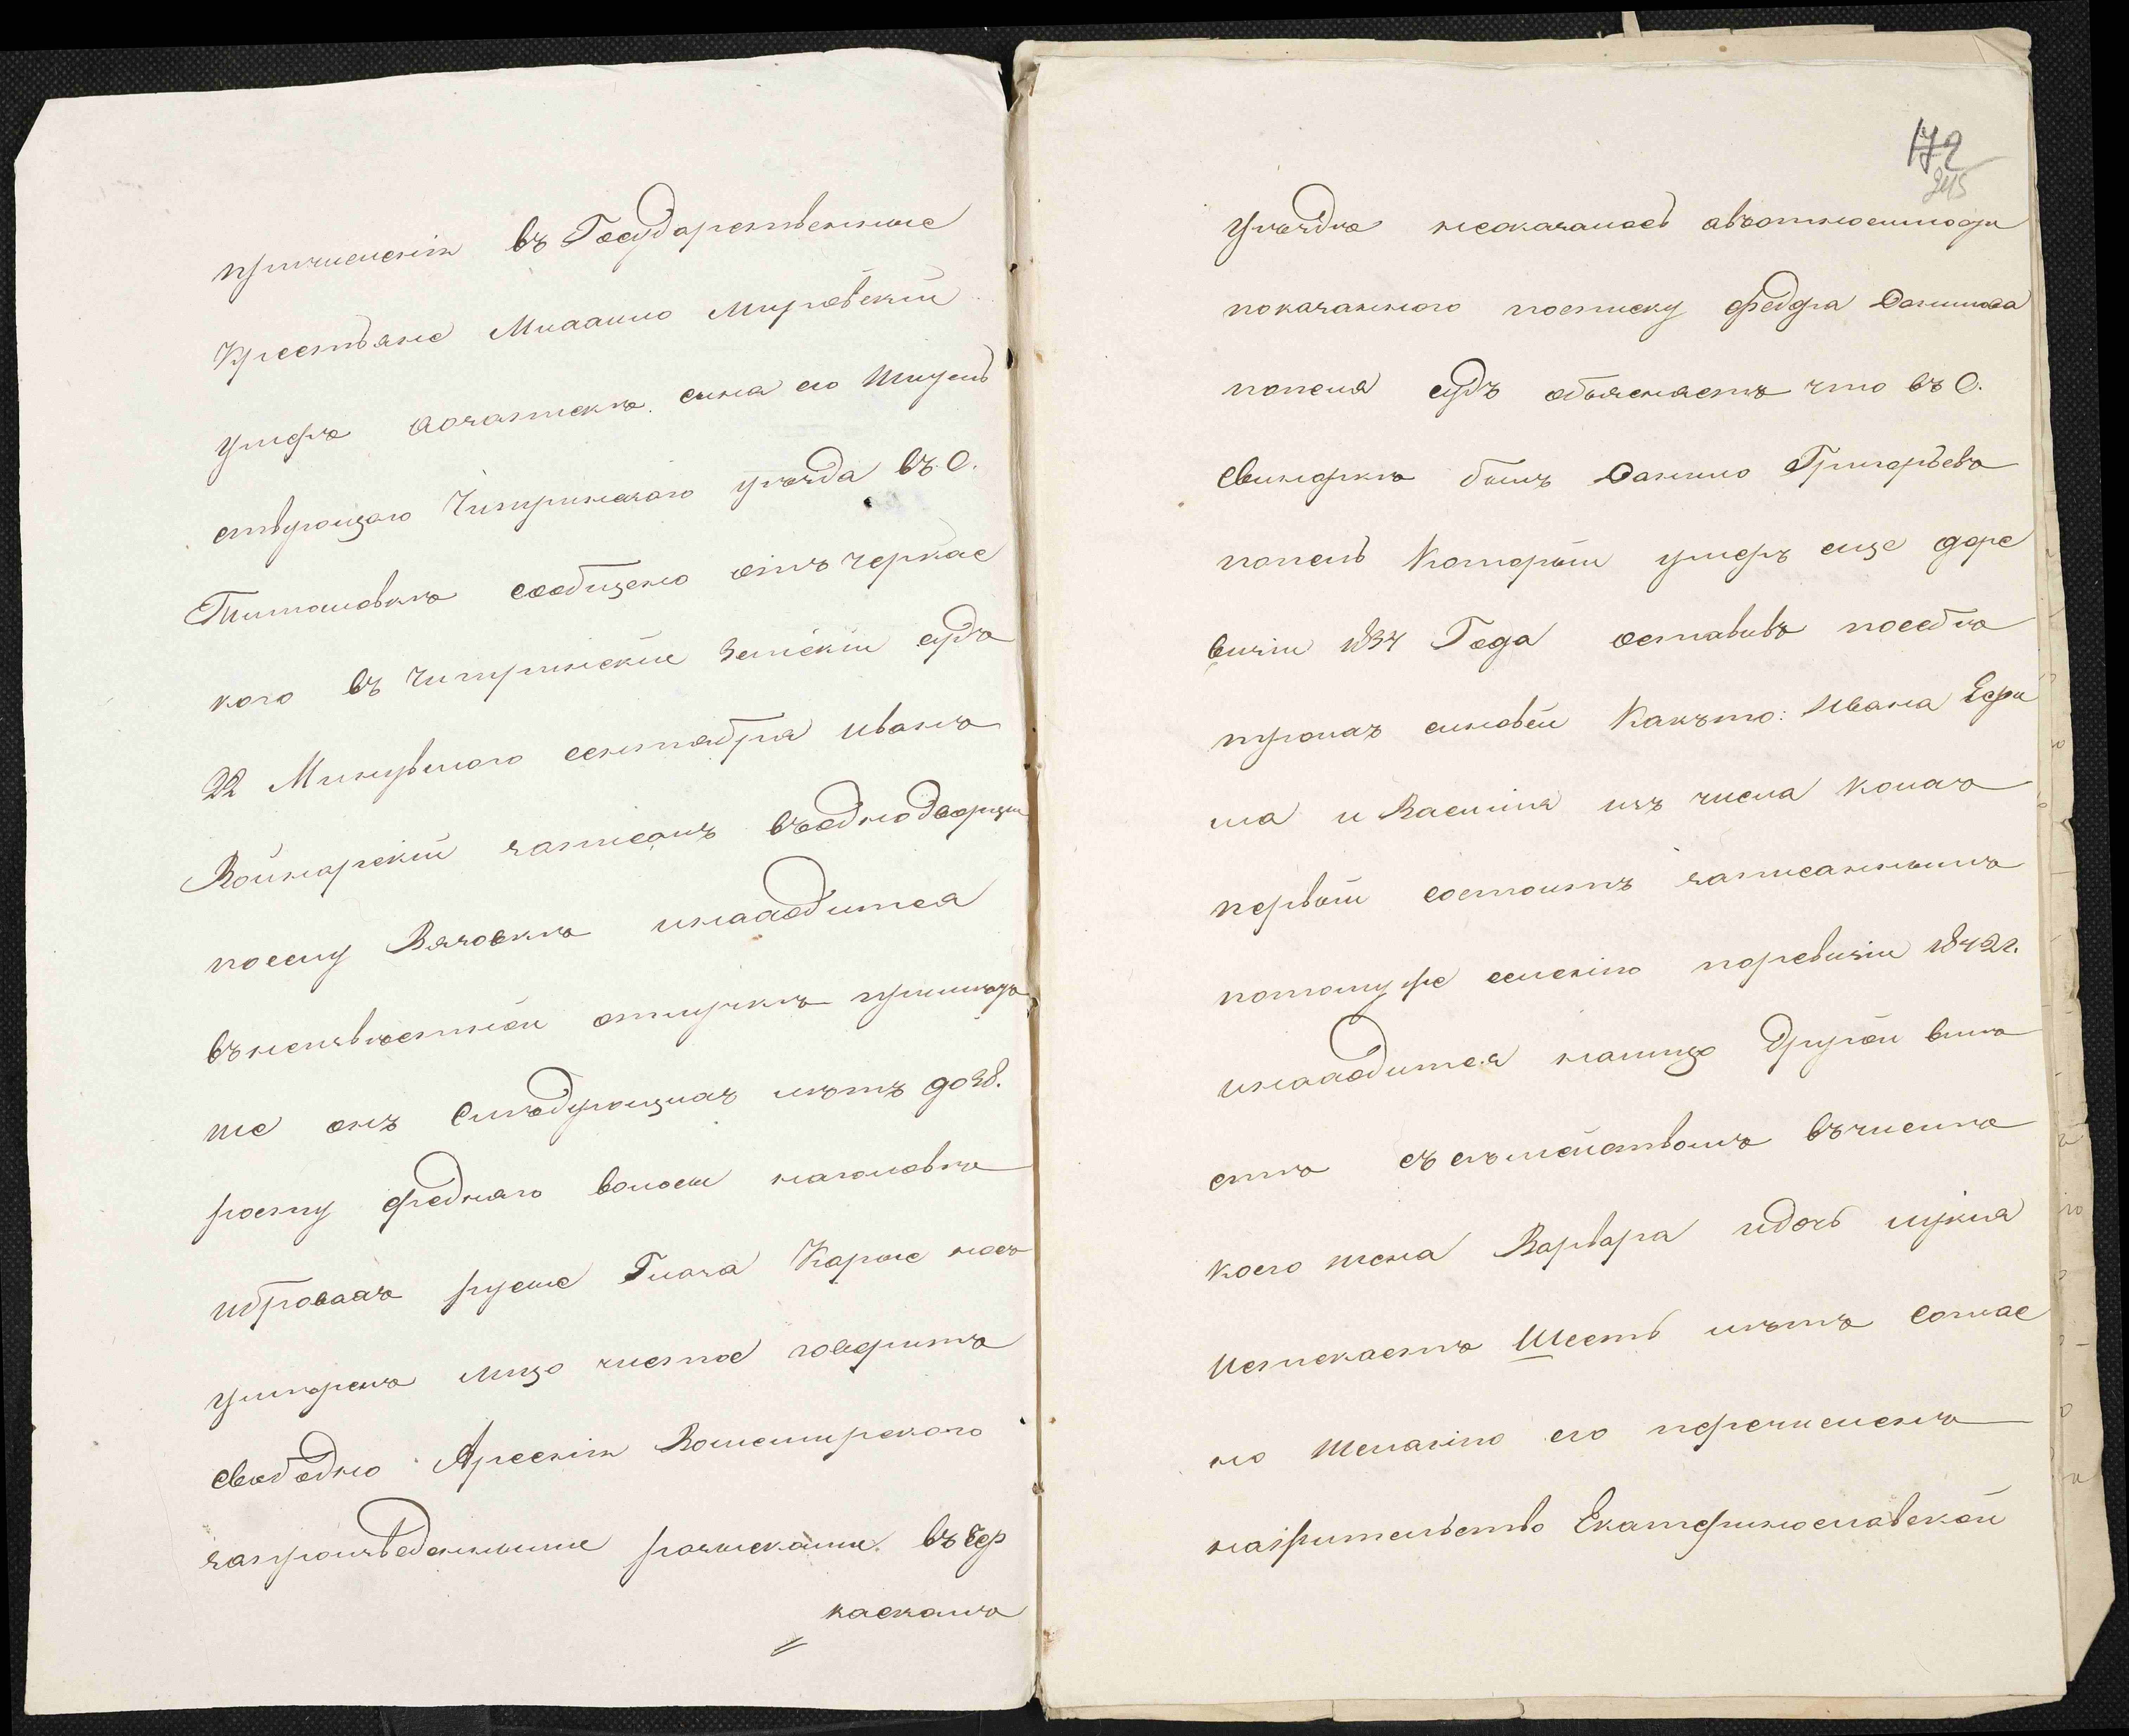 причисленіи въ Государственные
Крестьяне Михаило Мировскій
умеръ аозатемъ сына его жытель
ствующаго Чигиринскаго уѣзда въ С.
Титоновкѣ сообщено отъ черкас
кого въ Чигиринскіи Земскіи судъ
22 Минувшого сентября Иванъ
Войнарскій записанъ въ однодворцы
посему Вязовкѣ инаходится
въ неизвѣстной отлучкѣ примѣты
же онъ Слѣдующиа лѣтъ до 38.
росту средняго волосы наголовѣ
ибровахъ русые Глаза Карые носъ
умѣренъ лицо чистое говоритъ
свободно Арсеніи
запроизведенными розысками въ Чер
каскомъ
172
245
уѣздѣ неоказалось авъотношеніи
показанного посписку Федора Данилова
попеля судъ объясняетъ что въ С.
Свинаркѣ былъ Данило Григорьевъ
попель Который умеръ еще доре
визіи 1834 Года оставивъ посебѣ
трохъ сыновей Какъто: Ивана Ефи
ма и Василія изъ числа коихъ
первый состоитъ записаннымъ
потомуже селенію поревизіи 1842 г.
инаходится налицо Другой вмѣ
стѣ съ съмействомъ въчислѣ
коего жена Варвара идочь лукія
Истекаетъ Шесть лѣтъ соглас
но Желанію его перечисленъ
нажительство Екатеринославской